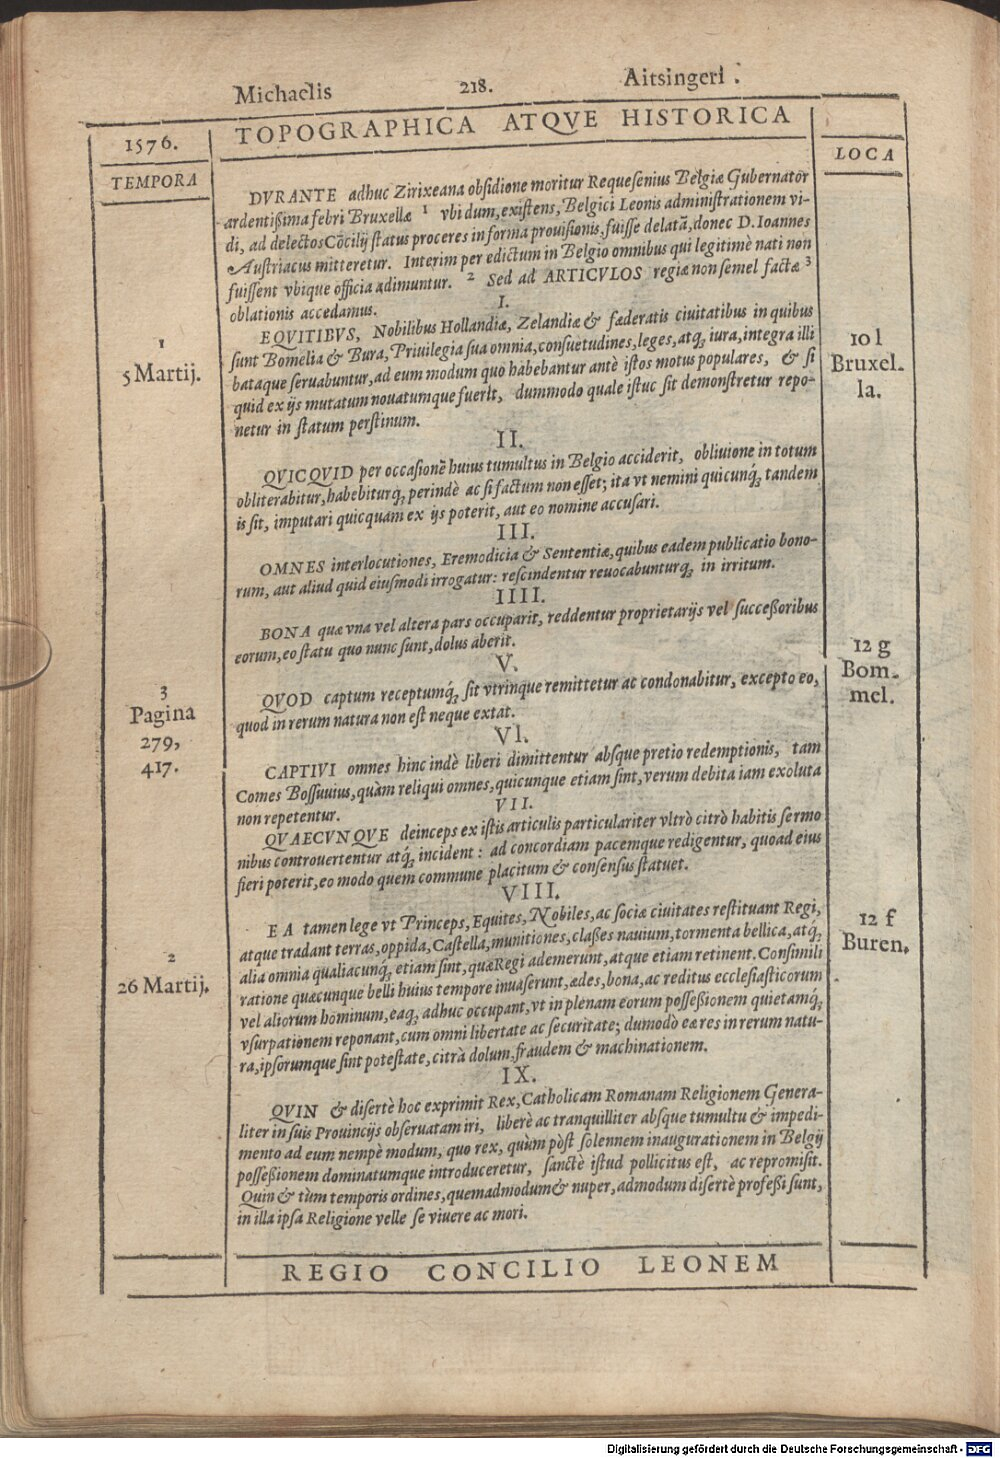 Michaelis 218. Aitsingeri.
1576. TOPOGRAPHICA ATQVE HISTORICA
TEMPORA
LOCA
DVRANTE adhuc Zirixeana obsidione moritur Requesenius Belgiæ Gubernator
ardentißima febri Bruxellæ 1 vbi dum, existens, Belgici Leonis administrationem vi-
di, ad delectos Cōcilij status proceres in forma prouisionis, fuisse delatā, donec D. Ioannes
Austriacus mitteretur. Interim per edictum in Belgio omnibus qui legitimè nati non
fuissent vbique officia adimuntur. 2 Sed ad ARTICVLOS regiæ non semel factæ 3
oblationis accedamus.
I.
EQVITIBVS, Nobilibus Hollandiæ, Zelandiæ & fæderatis ciuitatibus in quibus
sunt Bomelia & Bura, Priuilegia sua omnia, consuetudines, leges, atq; iura, integra illi
bataque seruabuntur, ad eum modum quo habebantur antè istos motus populares, & si
quid ex ijs mutatum nouatumque fuerit, dummodo quale istuc sit demonstretur repo-
netur in statum perstinum.
II.
QVICQVID per occasionē huius tumultus in Belgio acciderit, obliuione in totum
obliterabitur, habebiturq́; perindè ac si factum non esset; ita vt nemini quicunq́; tandem
is sit, imputari quicquam ex ijs poterit, aut eo nomine accusari.
III.
OMNES interlocutiones, Eremodicia & Sententiæ, quibus eadem publicatio bono-
rum, aut aliud quid eiusmodi irrogatur: rescindentur reuocabunturq́; in irritum.
IIII.
BONA quæ vna vel altera pars occuparit, reddentur proprietarijs vel succeßoribus
eorum, eo statu quo nunc sunt, dolus aberit.
V.
QVOD captum receptumq́; sit vtrinque remittetur ac condonabitur, excepto eo,
quod in rerum natura non est neque extat.
VI.
CAPTIVI omnes hinc indè liberi dimittentur absque pretio redemptionis, tam
Comes Bossuuius, quàm reliqui omnes, quicunque etiam sint, verum debita iam exoluta
non repetentur.
VII.
QVAECVNQVE deinceps ex istis articulis particulariter vltrò citrò habitis sermo
nibus controuertentur atq́; incident: ad concordiam pacemque redigentur, quoad eius
fieri poterit, eo modo quem commune placitum & consensus statuet.
VIII.
EA tamen lege vt Princeps, Equites, Nobiles, ac sociæ ciuitates restituant Regi,
atque tradant terras, oppida, Castella, munitiones, claßes nauium, tormenta bellica, atq́;
alia omnia qualiacunq́; etiam sint, quæ Regi ademerunt, atque etiam retinent. Consimili
ratione quæcunque belli huius tempore inuaserunt, ædes, bona, ac reditus ecclesiasticorum
vel aliorum hominum, eaq́; adhuc occupant, vt in plenam eorum posseßionem quietamq́;
vsurpationem reponant, cum omni libertate ac securitate; dumodò ea res in rerum natu-
ra, ipsorumque sint potestate, citrà dolum, fraudem & machinationem.
IX.
QVIN & disertè hoc exprimit Rex, Catholicam Romanam Religionem Genera-
liter in suis Prouincijs obseruatam iri, liberè ac tranquilliter absque tumultu & impedi-
mento ad eum nempè modum, quo rex, quùm pòst solennem inaugurationem in Belgij
posseßionem dominatumque introduceretur, sanctè istud pollicitus est, ac repromisit.
Quin & tùm temporis ordines, quemadmodum & nuper, admodum disertè profeßi sunt,
in illa ipsa Religione velle se viuere ac mori.
REGIO CONCILIO LEONEM
1
5 Martij.
3
Pagina
279,
417.
2
26 Martij.
10 l
Bruxel-
la.
12 g
Bom-
mel.
12 f
Buren.
Digitalisierung gefördert durch die Deutsche Forschungsgemeinschaft - DFG